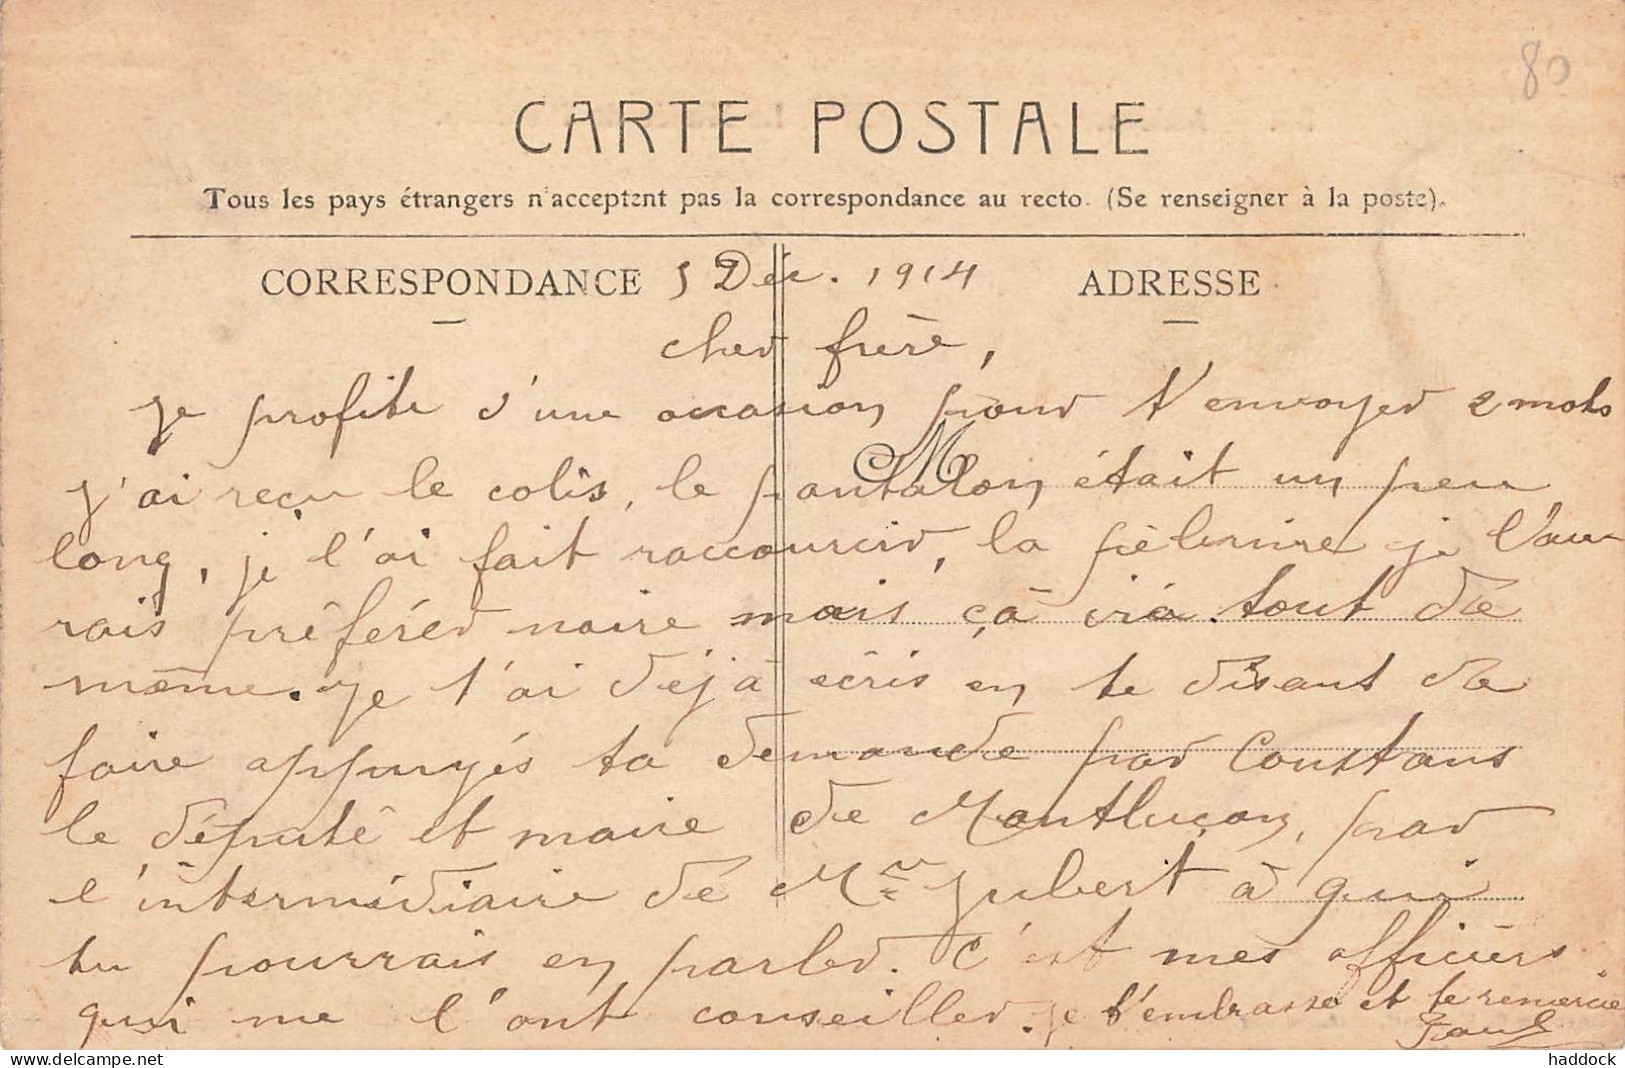 80
CARTE POSTALE
Tous les pays étrangers n'acceptent pas la correspondance au recto. (Se renseigner à la poste).
CORRESPONDANCE 5 Déc. 1914 ADRESSE
cher frère,
je profite d'une occasion pour t'envoyer 2 mots
M
j'ai reçu le colis, le pantalon était un peu
long, je l'ai fait raccourcir, la pèlerine je l'au
rais préférer noire mais çà ira tout de
même. je t'ai déjà écris en te disant de
faire appuyés ta demande par Constans
le député et maire de Montluçon, par
l'intermédiaire de Mr Jubert à qui
tu pourrais en parler. C'est mes officiers
qui me l'ont conseiller. je t'embrasse et te remercie
haddock
www.delcampe.net